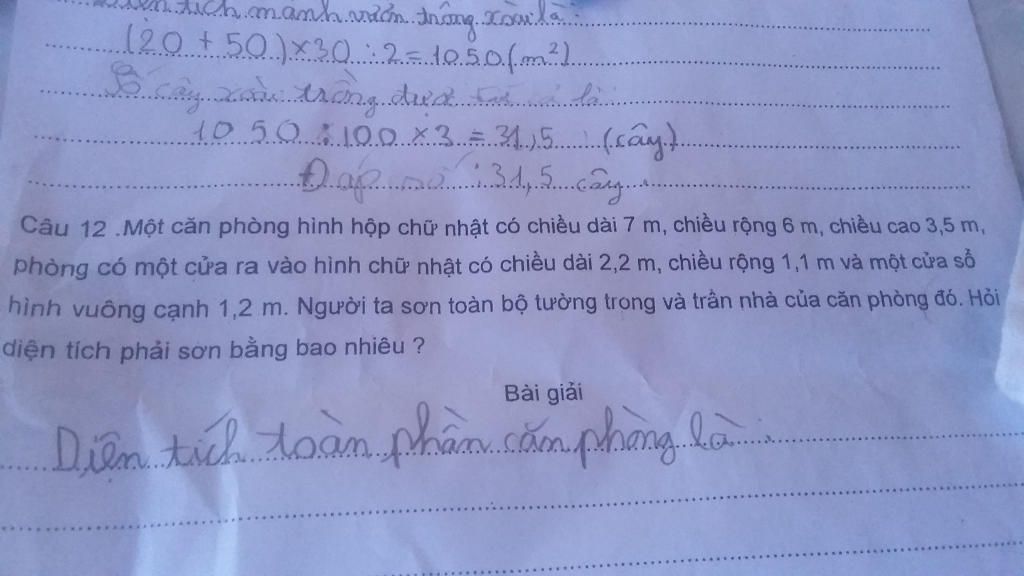 Diện tích mảnh vườn trồng xoài là :
(20 + 50) × 30 : 2 = 1050 (m²)
Số cây xoài trồng được tất cả là
1050 : 100 × 3 = 31,5 (cây)
Đáp số : 31,5 cây.
Câu 12 .Một căn phòng hình hộp chữ nhật có chiều dài 7 m, chiều rộng 6 m, chiều cao 3,5 m,
phòng có một cửa ra vào hình chữ nhật có chiều dài 2,2 m, chiều rộng 1,1 m và một cửa sổ
hình vuông cạnh 1,2 m. Người ta sơn toàn bộ tường trong và trần nhà của căn phòng đó. Hỏi
diện tích phải sơn bằng bao nhiêu ?
Bài giải
Diện tích toàn phần căn phòng là :